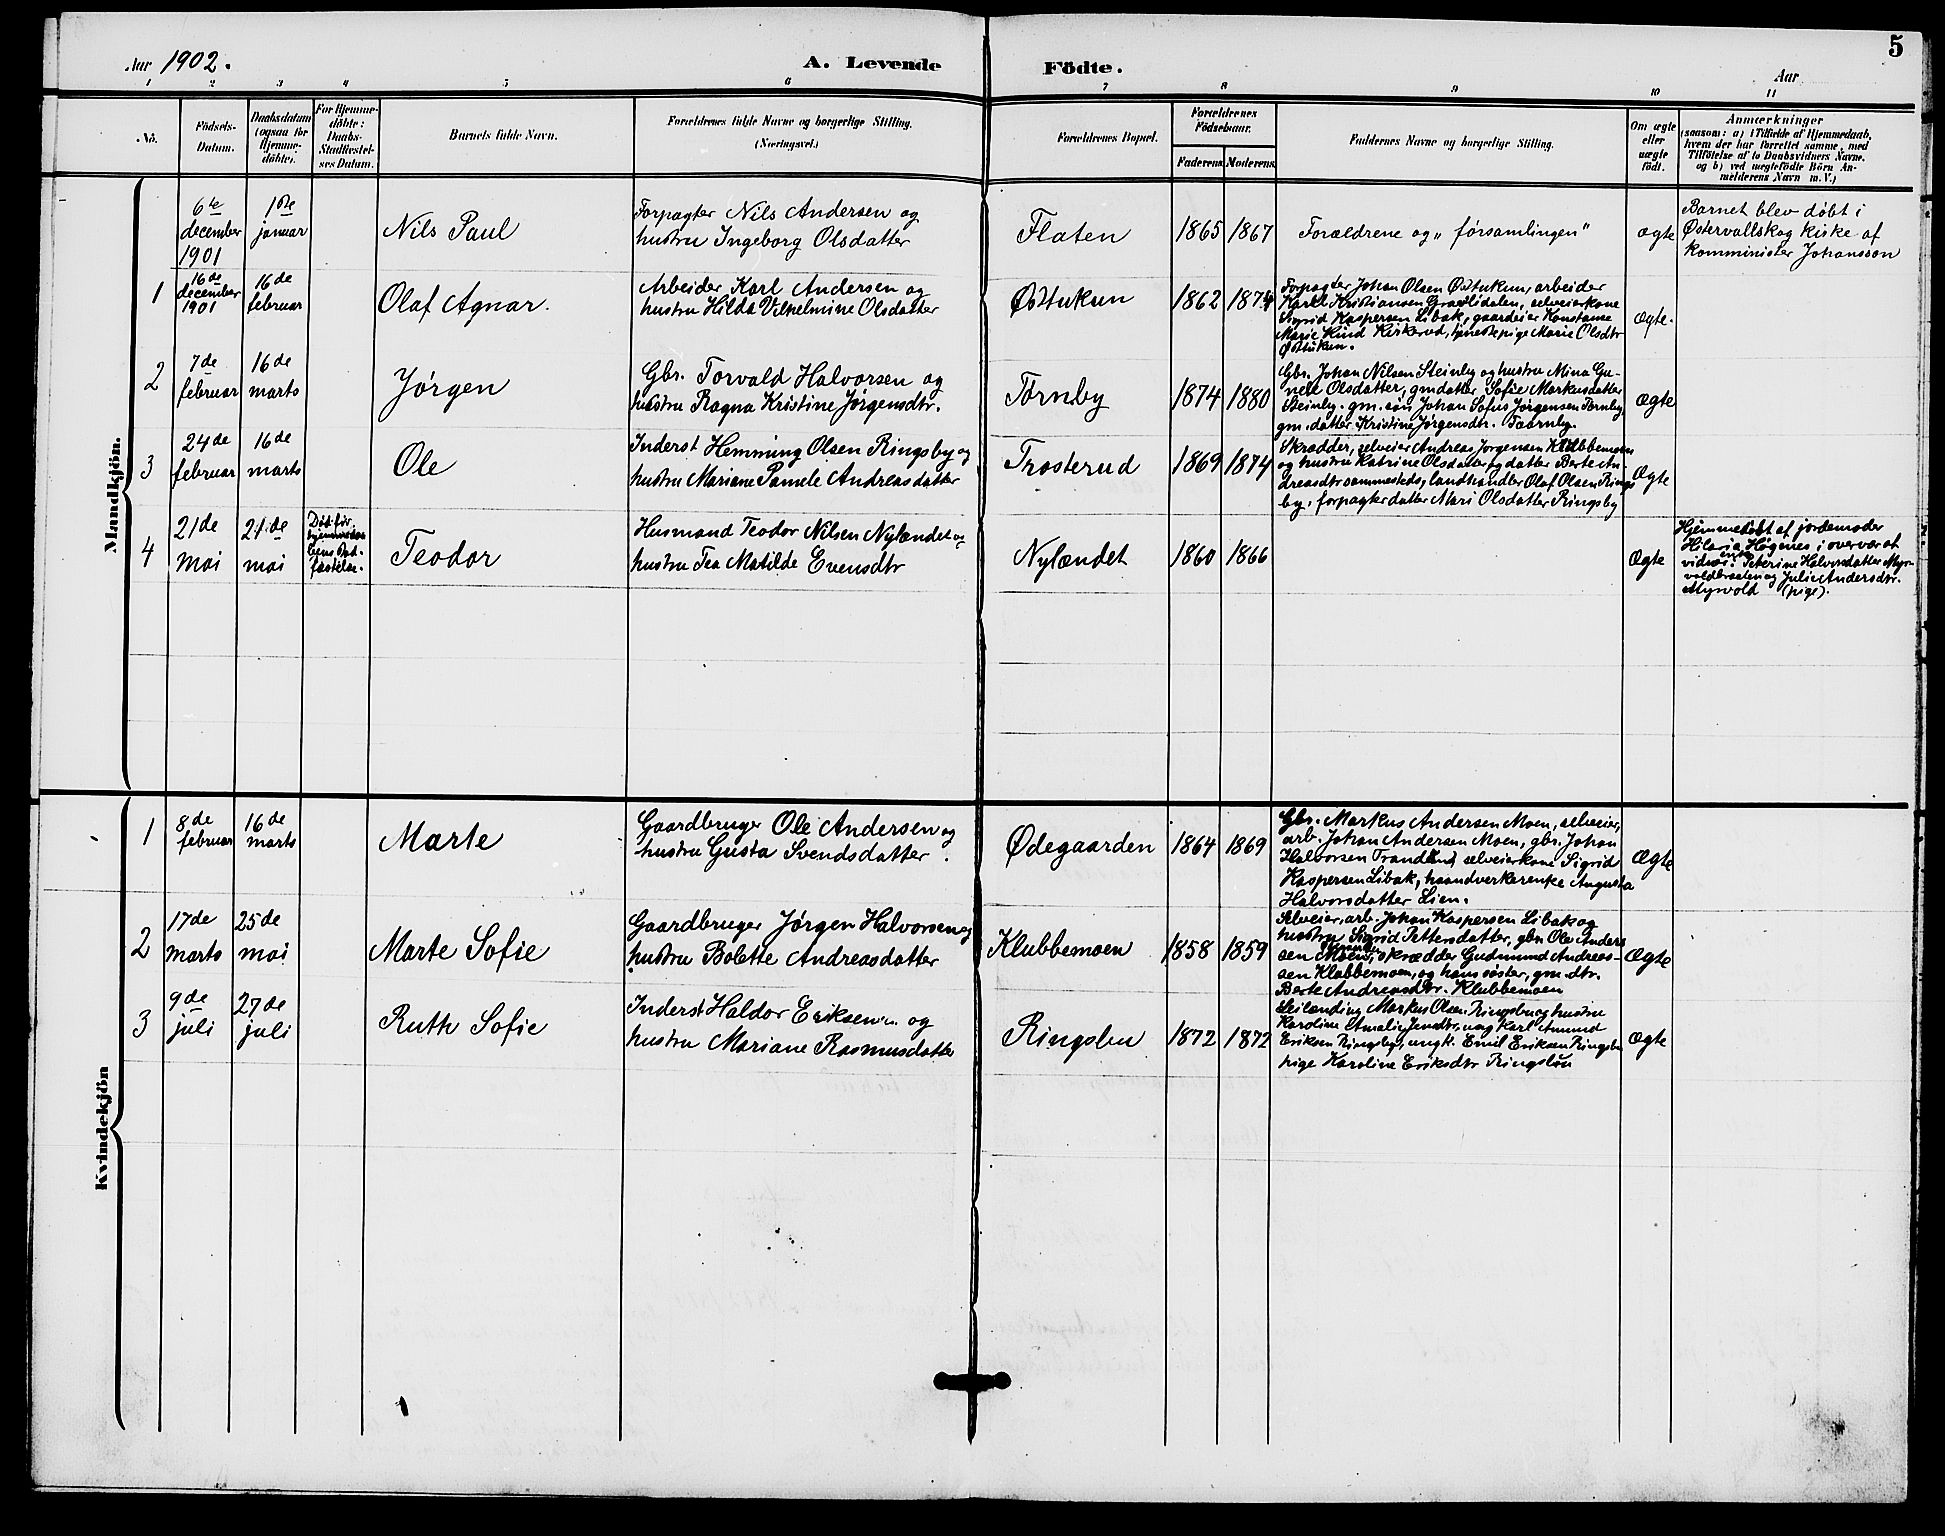 Aar 1902.
A. Levende Födte.
Aar
5
1 2 3 4 5 6 7 8 9 10 11
No.
Födsels-
Datum.
Daabsdatum
(ogsaa for
Hjemme-
döbte).
For Hjemme-
döbte:
Daabs-
Stadfæstel-
ses Datum.
Barnets fulde Navn.
Forældrenes fulde Navne og borgerlige Stilling.
(Næringsvei.)
Forældrenes Bopæl.
Forældrenes
Födselsaar.
Faderens.
Moderens.
Faddernes Navne og borgerlige Stilling.
Om ægte
eller
uægte
födt.
Anmærkninger
(saasom: a) i Tilfælde af Hjemmedaab,
hvem der har forrettet samme, med
Tilföielse af to Daabsvidners Navne,
og b) ved uægtefödte Börn An-
melderens Navn m. V.)
Mandkjön.
6te
december
1901
1ste
januar
Nils Paul
Forpagter Nils Andersen og
hustru Ingeborg Olsdatter
Flaten
1865
1867
Forældrene og „forsamlingen"
ægte
Barnet blev døbt i
Østervallskog kirke af
komminister Johansson
1
16de
december
1901
16de
februar
Olaf Agnar.
Arbeider Karl Andersen og
hustru Hilda Vilhelmine Olsdatter
Østuken
1862
1874
Forpagter Johan Olsen Østuken, arbeider
Karl Kristiansen Graaslidalen, selveierkone
Sigrid Kaspersen Libak, gaardeier Konstanse
Marie Kirkerud, tjenestepige Marie Olsdtr
Østuken.
Ægte.
2
7de
februar
16de
marts
Jørgen
Gbr. Torvald Halvorsen og
hustru Ragna Kristine Jørgensdtr.
Tørnby
1874
1880
Gbr. Johan Nilsen Steinby og hustru Mina Gu-
nelle Olsdatter, gmdatter Sofie Markusdatter
Steinby. gm. søn Johan Sofus Jørgensen Tørnby
gm. datter Kristine Jørgensdtr. Taarnby.
Ægte
3
24de
februar
16de
marts
Ole
Inderst Hemming Olsen Ringsby og
hustru Mariane Pamele Andreasdatter
Trosterud
1869
1874
Skrædder, selveier Andreas Jørgensen Klubbemoen
og hustru Katrine Olsdatter og datter Berte An-
dreasdtr sammesteds, landhandler Olaf Olsen Rings
by, forpagterdatter Mari Olsdatter Ringsby
Ægte
4
21de
mai
21de
mai
Død før
hjemmedaa
bens stad-
fæstelse.
Teodor
Husmand Teodor Nilsen Nylændet og
hustru Tea Matilde Evensdtr
Nylændet
1860
1866
Ægte
Hjemmedøbt af jordemoder
Hilaria Høgenes i overvær af
vidner: enke Peterine Halvorsdatter Myr-
voldbraaten og Julie Andersdtr.
Myrvold (pige).
Kvindekjön
1
8de
februar
16de
marts
Marte
Gaardbruger Ole Andersen og
hustru Gusta Svendsdatter.
Ødegaarden
1864
1869
Gbr. Markus Andersen Moen, selveier,
arb. Johan Andersen Moen, gbr. Johan
Halvorsen Trandem, selveierkone Sigrid
Kaspersen Libak, haandverkerenke Augusta
Halvorsdatter Lien.
Ægte
2
17de
marts
25de
mai
Marte Sofie
Gaardbruger Jørgen Halvorsen og
hustru Bolette Andreasdatter
Klubbemoen
1858
1859
Selveier, arb. Johan Kaspersen Libak og
hustru Sigrid Pettersdatter, gbr. Ole Anders
sen Moen, skrædder Gudmund Andreas-
sen Klubbemoen, og hans søster, gm. dtr.
Berte Andreasdtr. Klubbemoen
Ægte
3
9de
juli
27de
juli
Ruth Sofie
Inderst Haldor Eriksen og
hustru Mariane Rasmusdatter
Ringsbu
1872
1872
Leilænding Markus Olsen Ringsby og hustru
Karoline Amalie Jensdtr, ung Karl Amund
Eriksen Ringsby, ungk. Emil Eriksen Ringsbu
pige Karoline Eriksdtr Ringsbu
Ægte